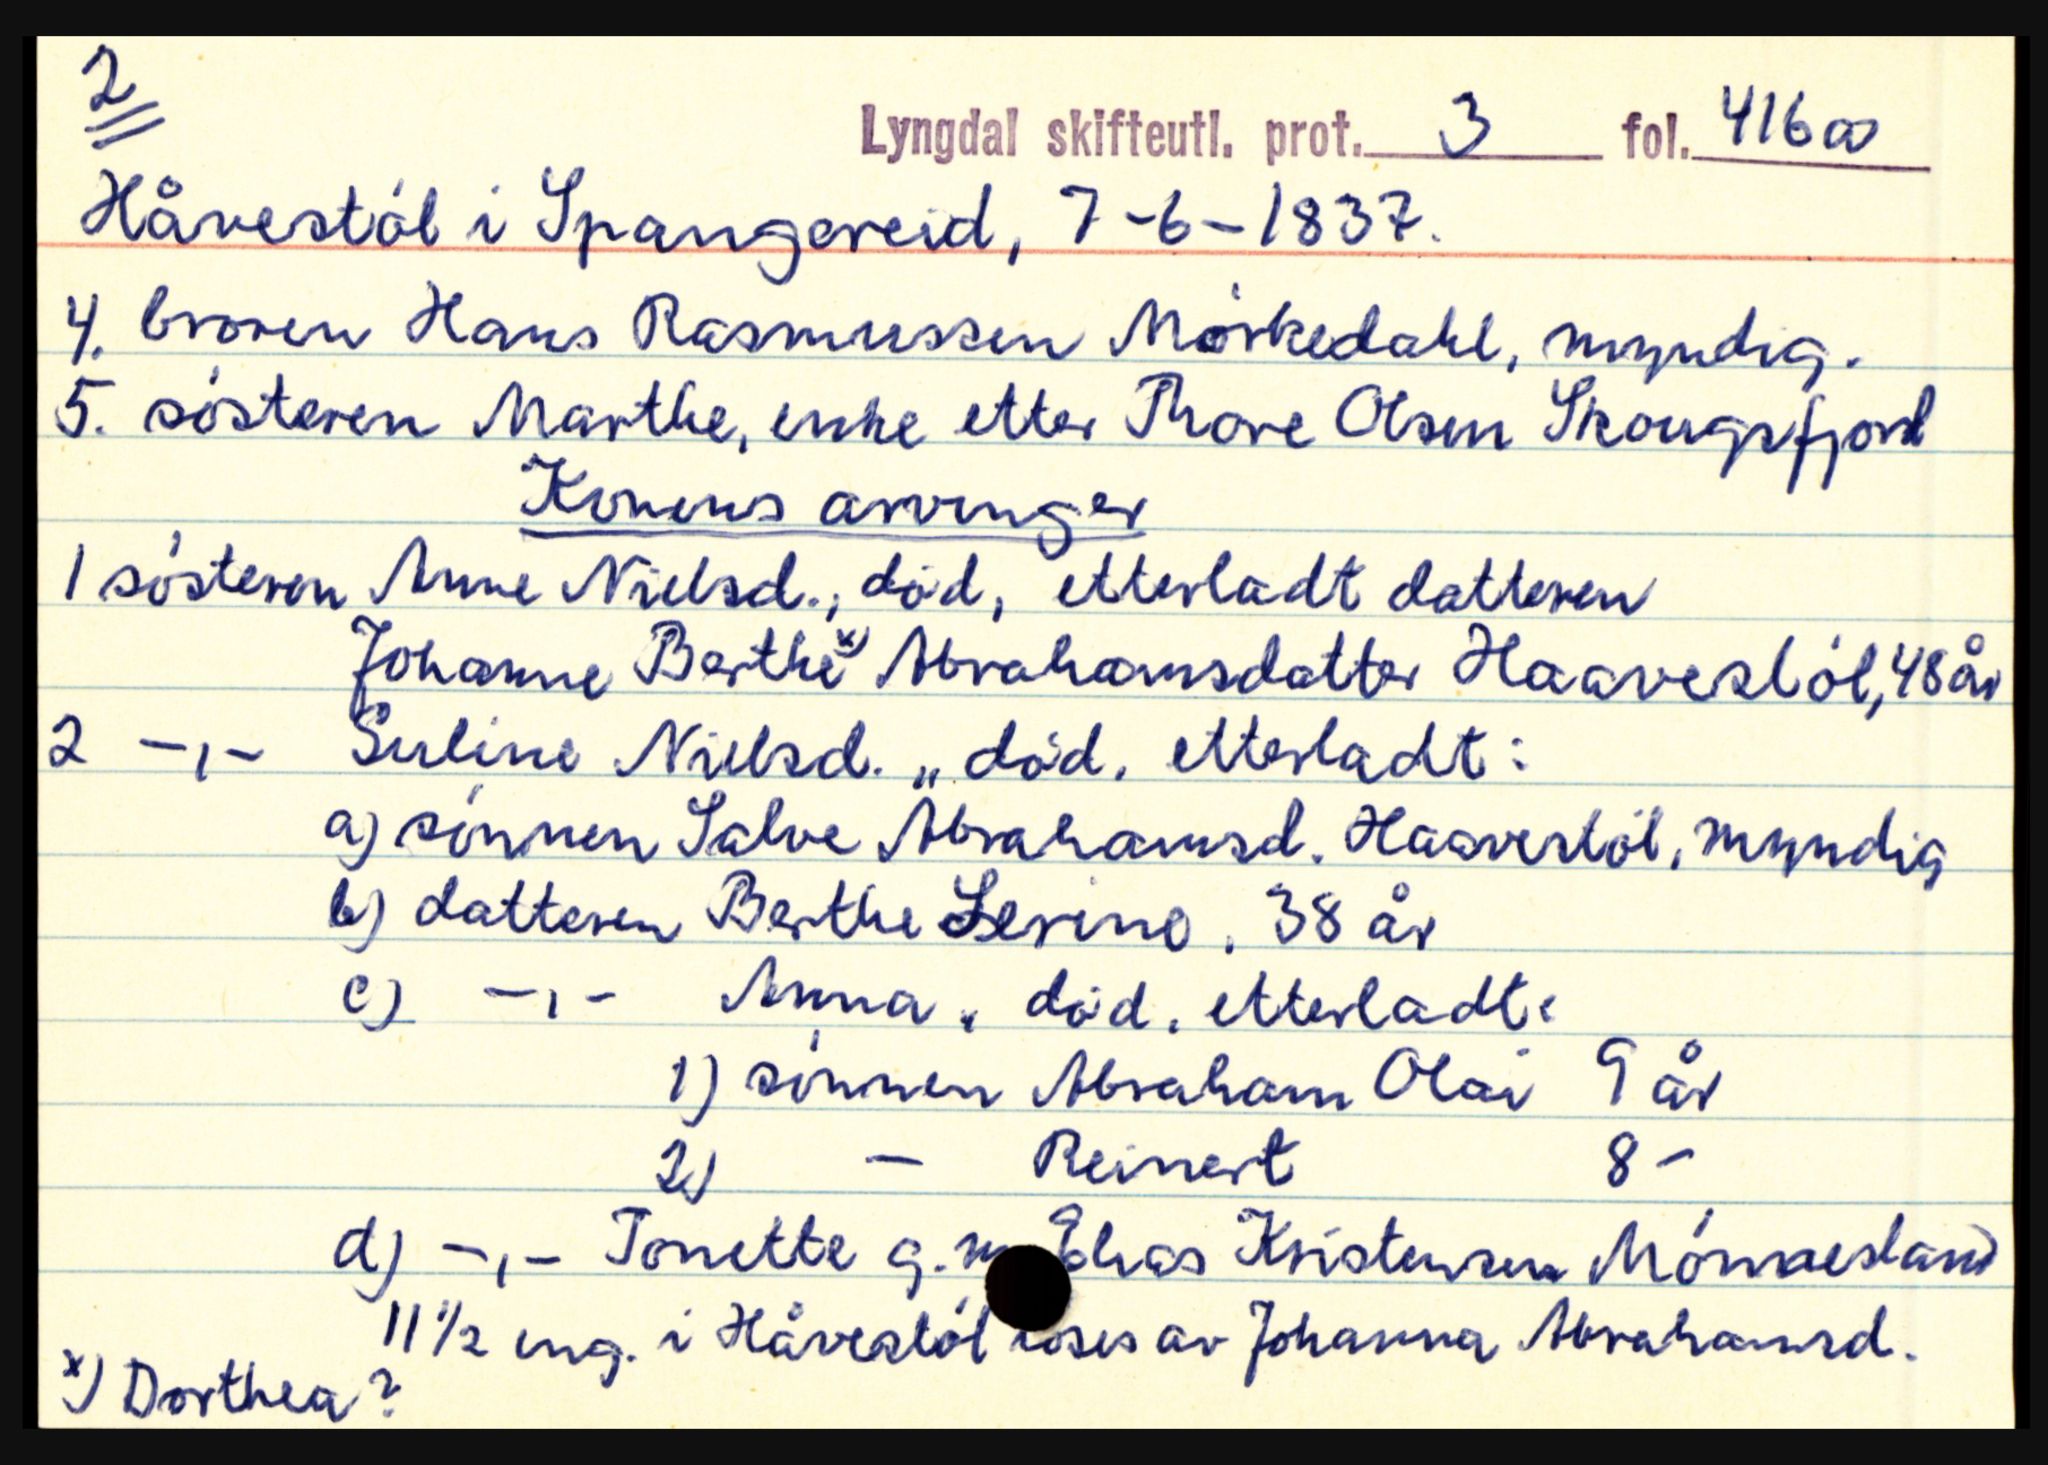 2
Lyngdal skifteutl. prot. 3 fol. 416a
Håvestöl i Spangereid, 7-6-1837.
4. broren Hans Rasmussen Mörkedahl, myndig.
5. sösteren Marthe, enke etter Thore Olsen Skougsfjord
Konens arvinger
1 sösteren Anne Nielsd., död, etterladt datteren
Johanne Berthe x) Abrahamsdatter Haavestöl, 48 år
2 -,- Seline Nielsd. „ död, etterladt:
a) sönnen Salve Abrahamsd. Haavestöl, myndig
b) datteren Berthe Serine, 38 år
c) -,- Anna, död, etterladt:
1) sönnen Abraham Olai 9 år
2) - Reinert 8 -
d) -,- Tonette g. m. Elias Kristensen Mönnesland
11 1/2 eng. i Håvestöl löses av Johanna Abrahamsd.
x) Dorthea?